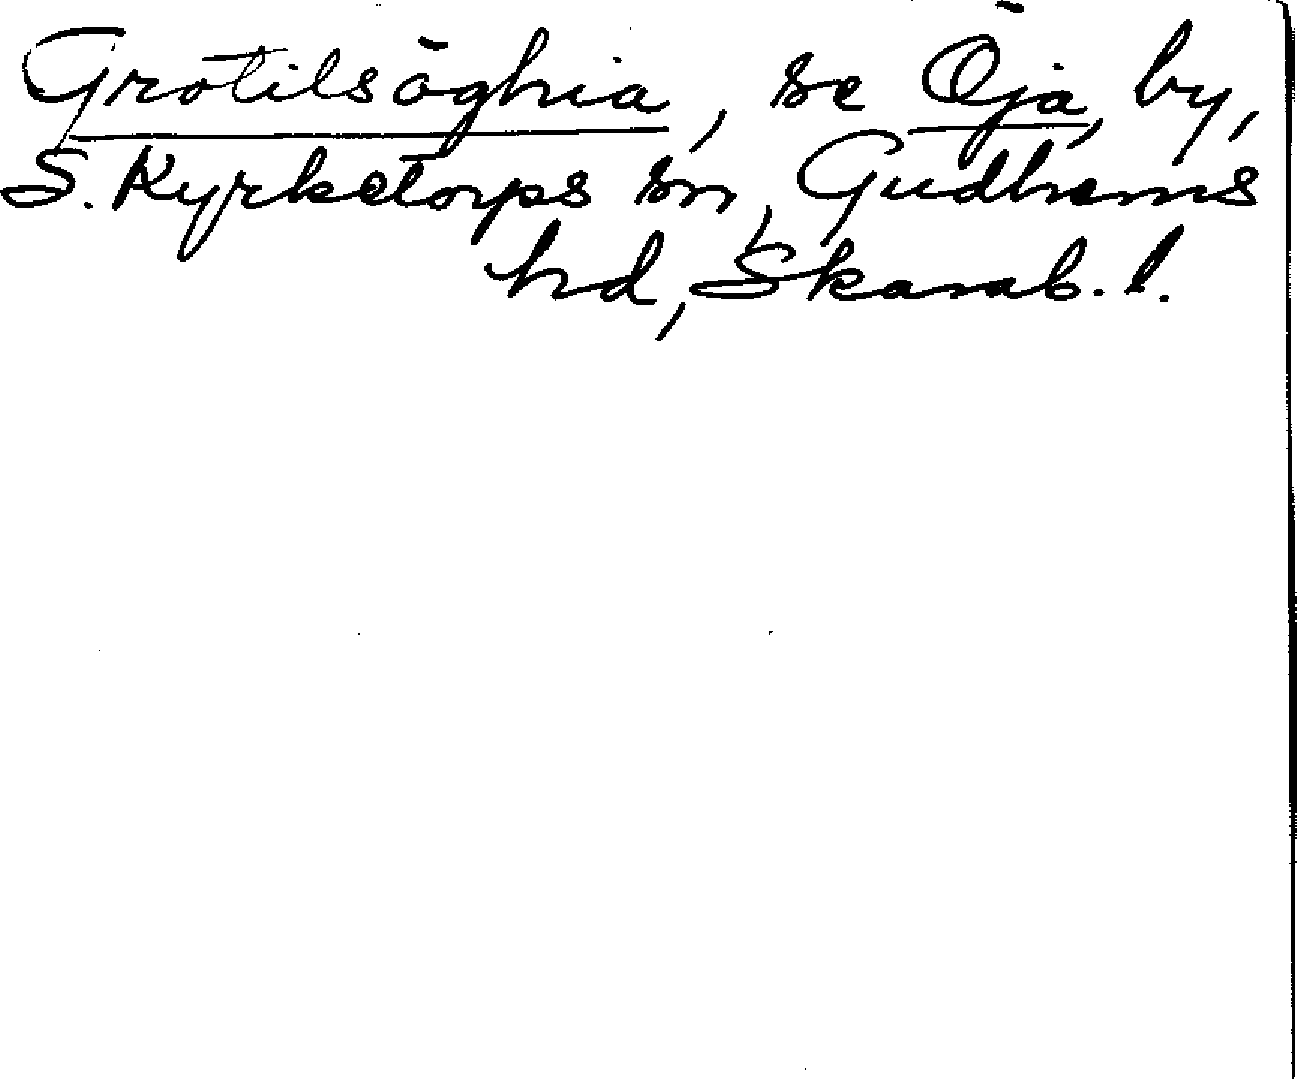 Grotilsöghia, se Öja, by,
S. Kyrketorps sn, Gudhems
hd, Skarab. l.